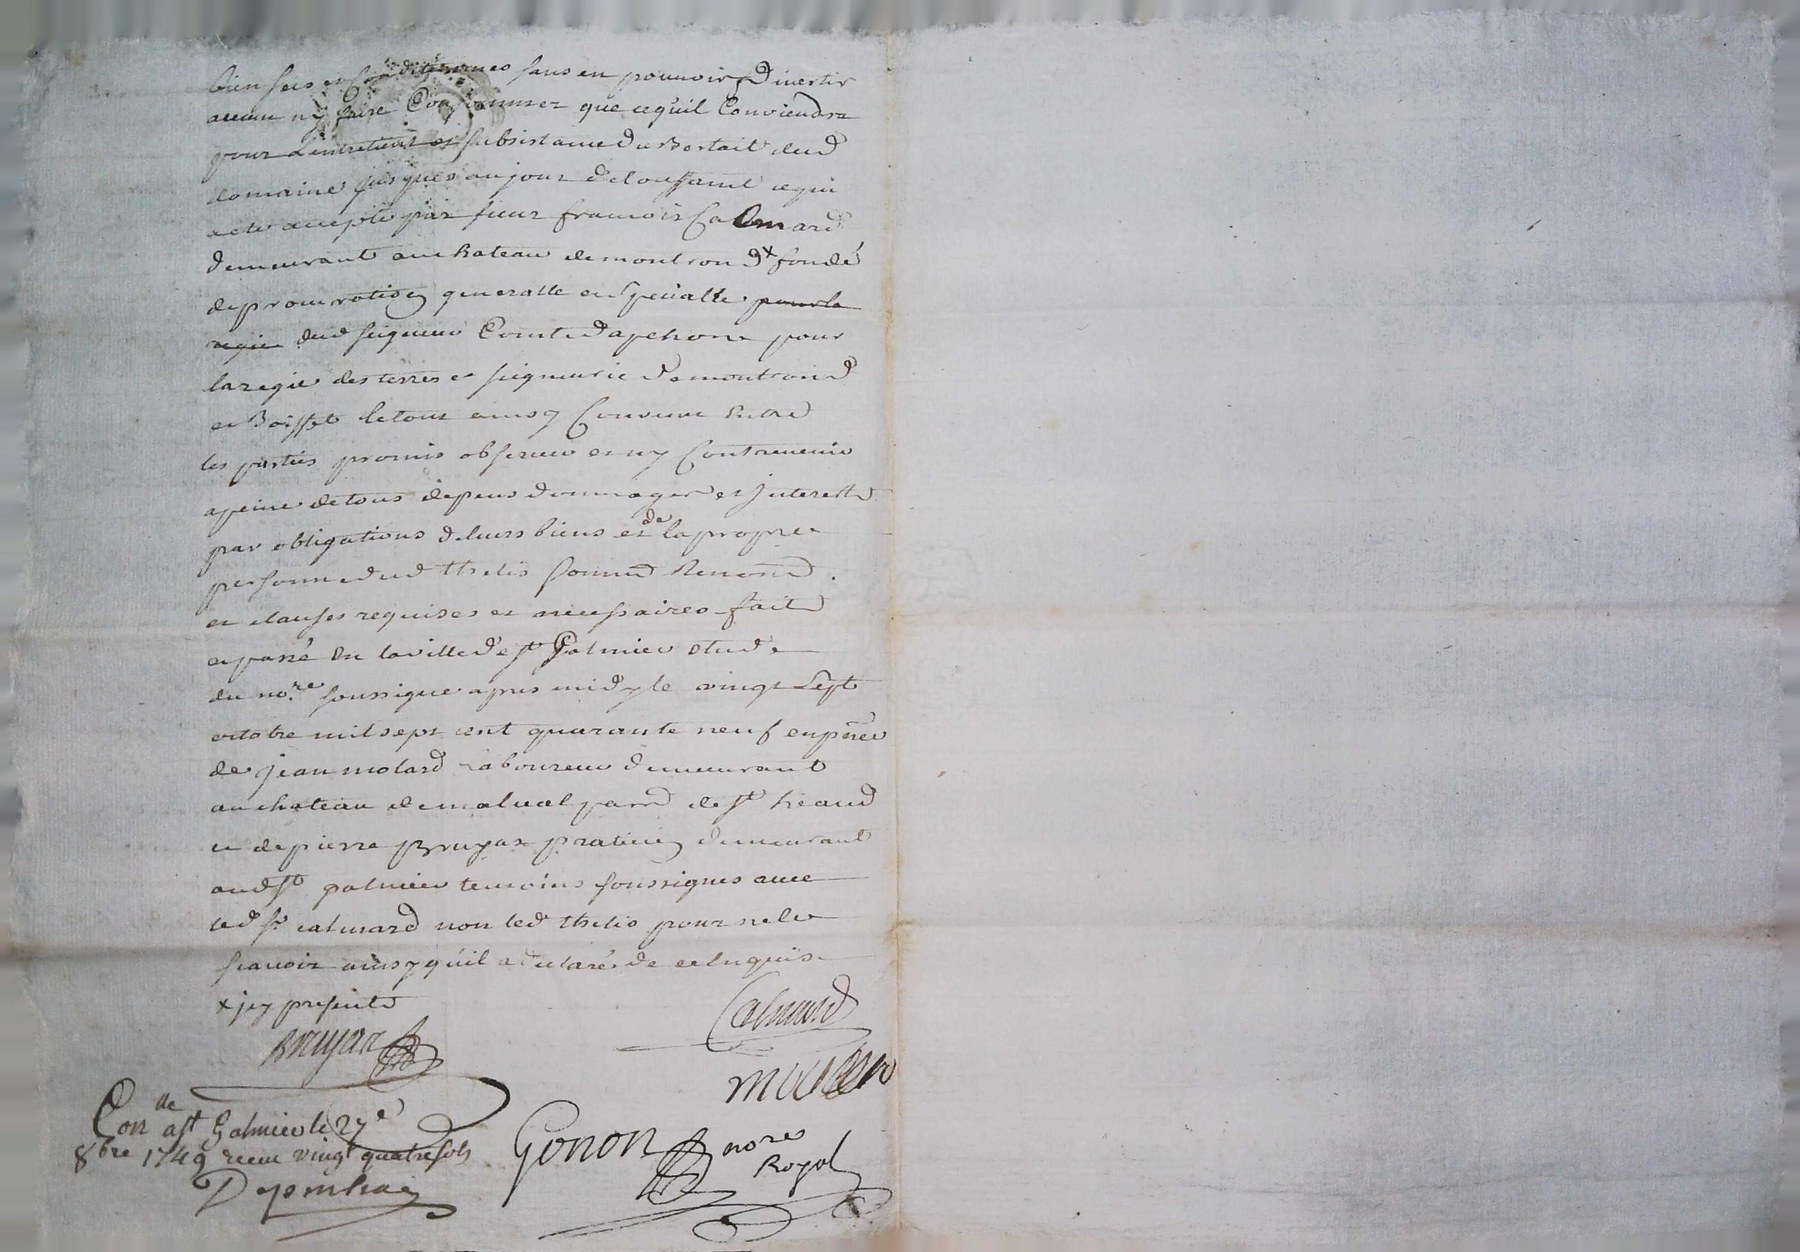 bien fers et sans en pouvoir divertir
aucun ny faire Consommer que cequil Conviendra
pour Lentretient et subsistance du Bestail dud
domaine jusques aujour de toussaint ce qui
a ete accepté par sieur francois Calmard
demeurant au chateau de montrond x fondé
de procuration generalle et specialle pour la
regie dud seigneur Comte dapchon pour
la regie des terres et seigneurie de montrond
et Boisset le tout ainsy Convenu Entre
les parties promis observer et ny Contrevenir
a peine de tous depens dommages et Interests
par obligations de leurs biens et de la propre
personne dud thelis soumis Renond
et clauses requises et necessaires fait
et passé En la ville de st Galmier etude
du nore soussigne apres midy le vingt sept
octobre mil sept cent quarante neuf en pñce
de jean molard Laboureur demeurant
au chateau de malval parr de st heand
et de pierre Bruyas praticien demeurant
aud st galmier temoins soussignes avec
led sr calmard non led thelis pour ne le
scavoir ainsy quil a declaré de ce Enquis
x jcy presente
Bruyas
Calmard
Gonon nore
Royal
Con de a st Galmier le 27e
8bre 1749 receu vingt quatre sols